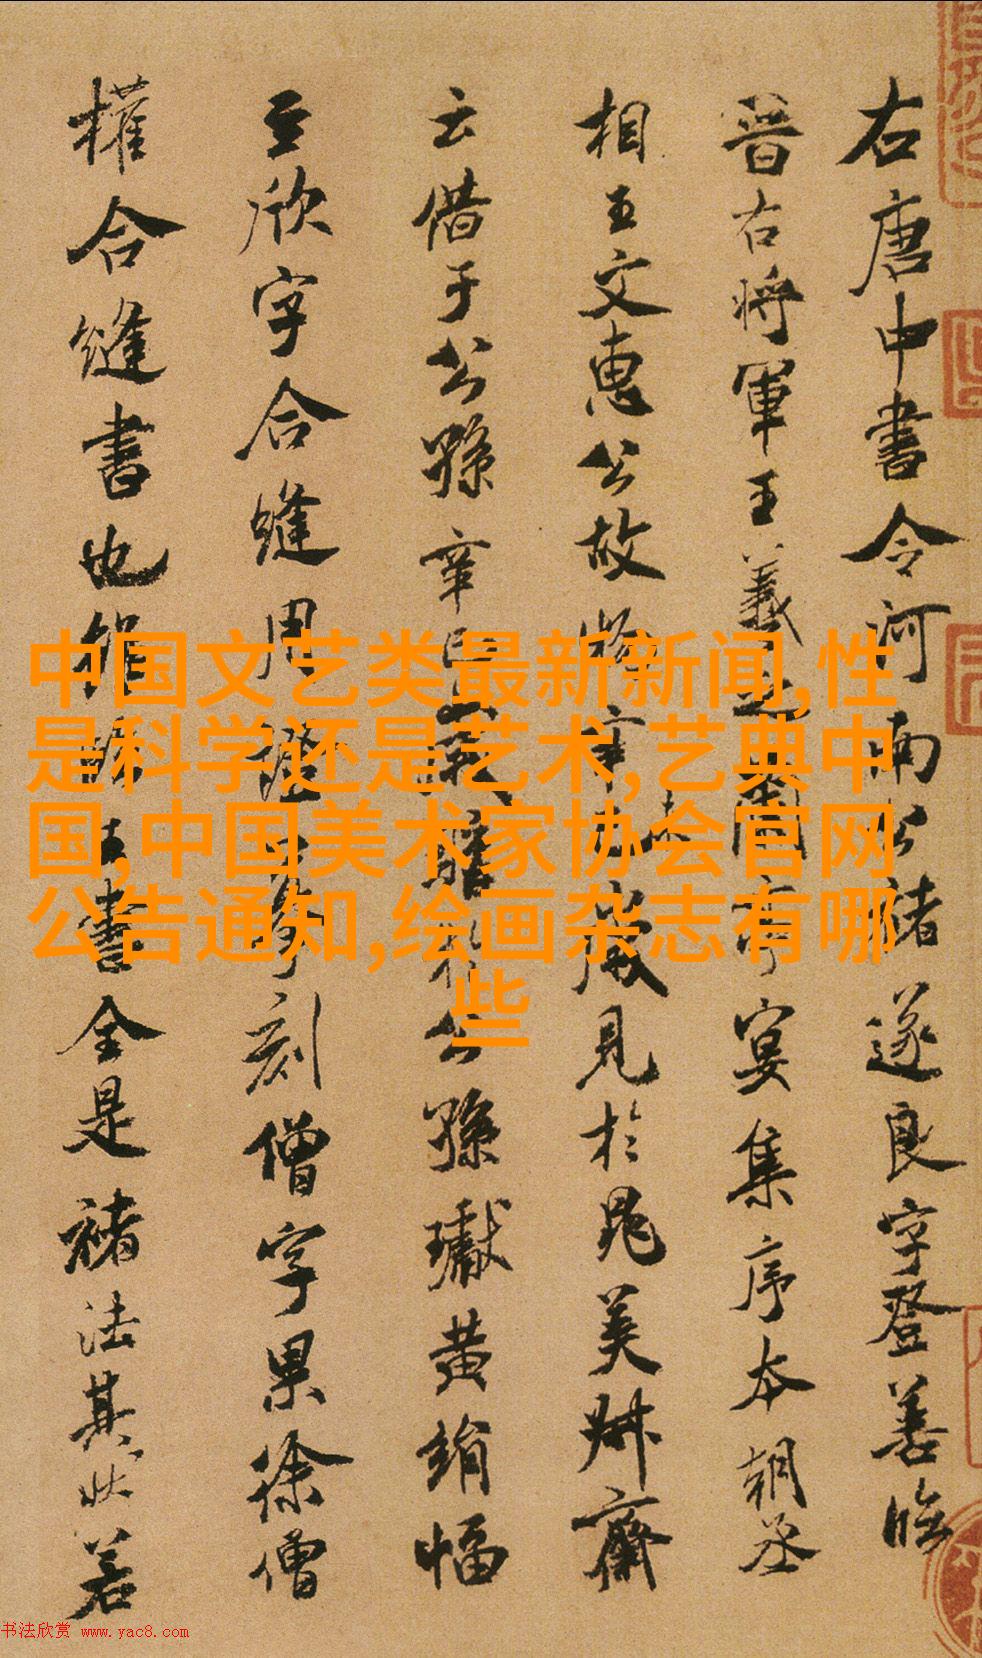 右唐中書令河南公褚遂良字登善臨
晉右將軍王羲之蘭亭宴集序本朝丞
相王文惠公故物辛巳歲見於晁美叔齋
云借于公孫辛巳歲購于公孫瓛黃絹幅
至欣字合縫用證摹刻僧字果徐僧
權合縫書也雖臨王書全是褚法其狀若
中国文艺类最新新闻,性
是科学还是艺术,艺典中
国,中国美术家协会官网
公告通知,绘画杂志有哪
些
书法欣赏 www.yac8.com